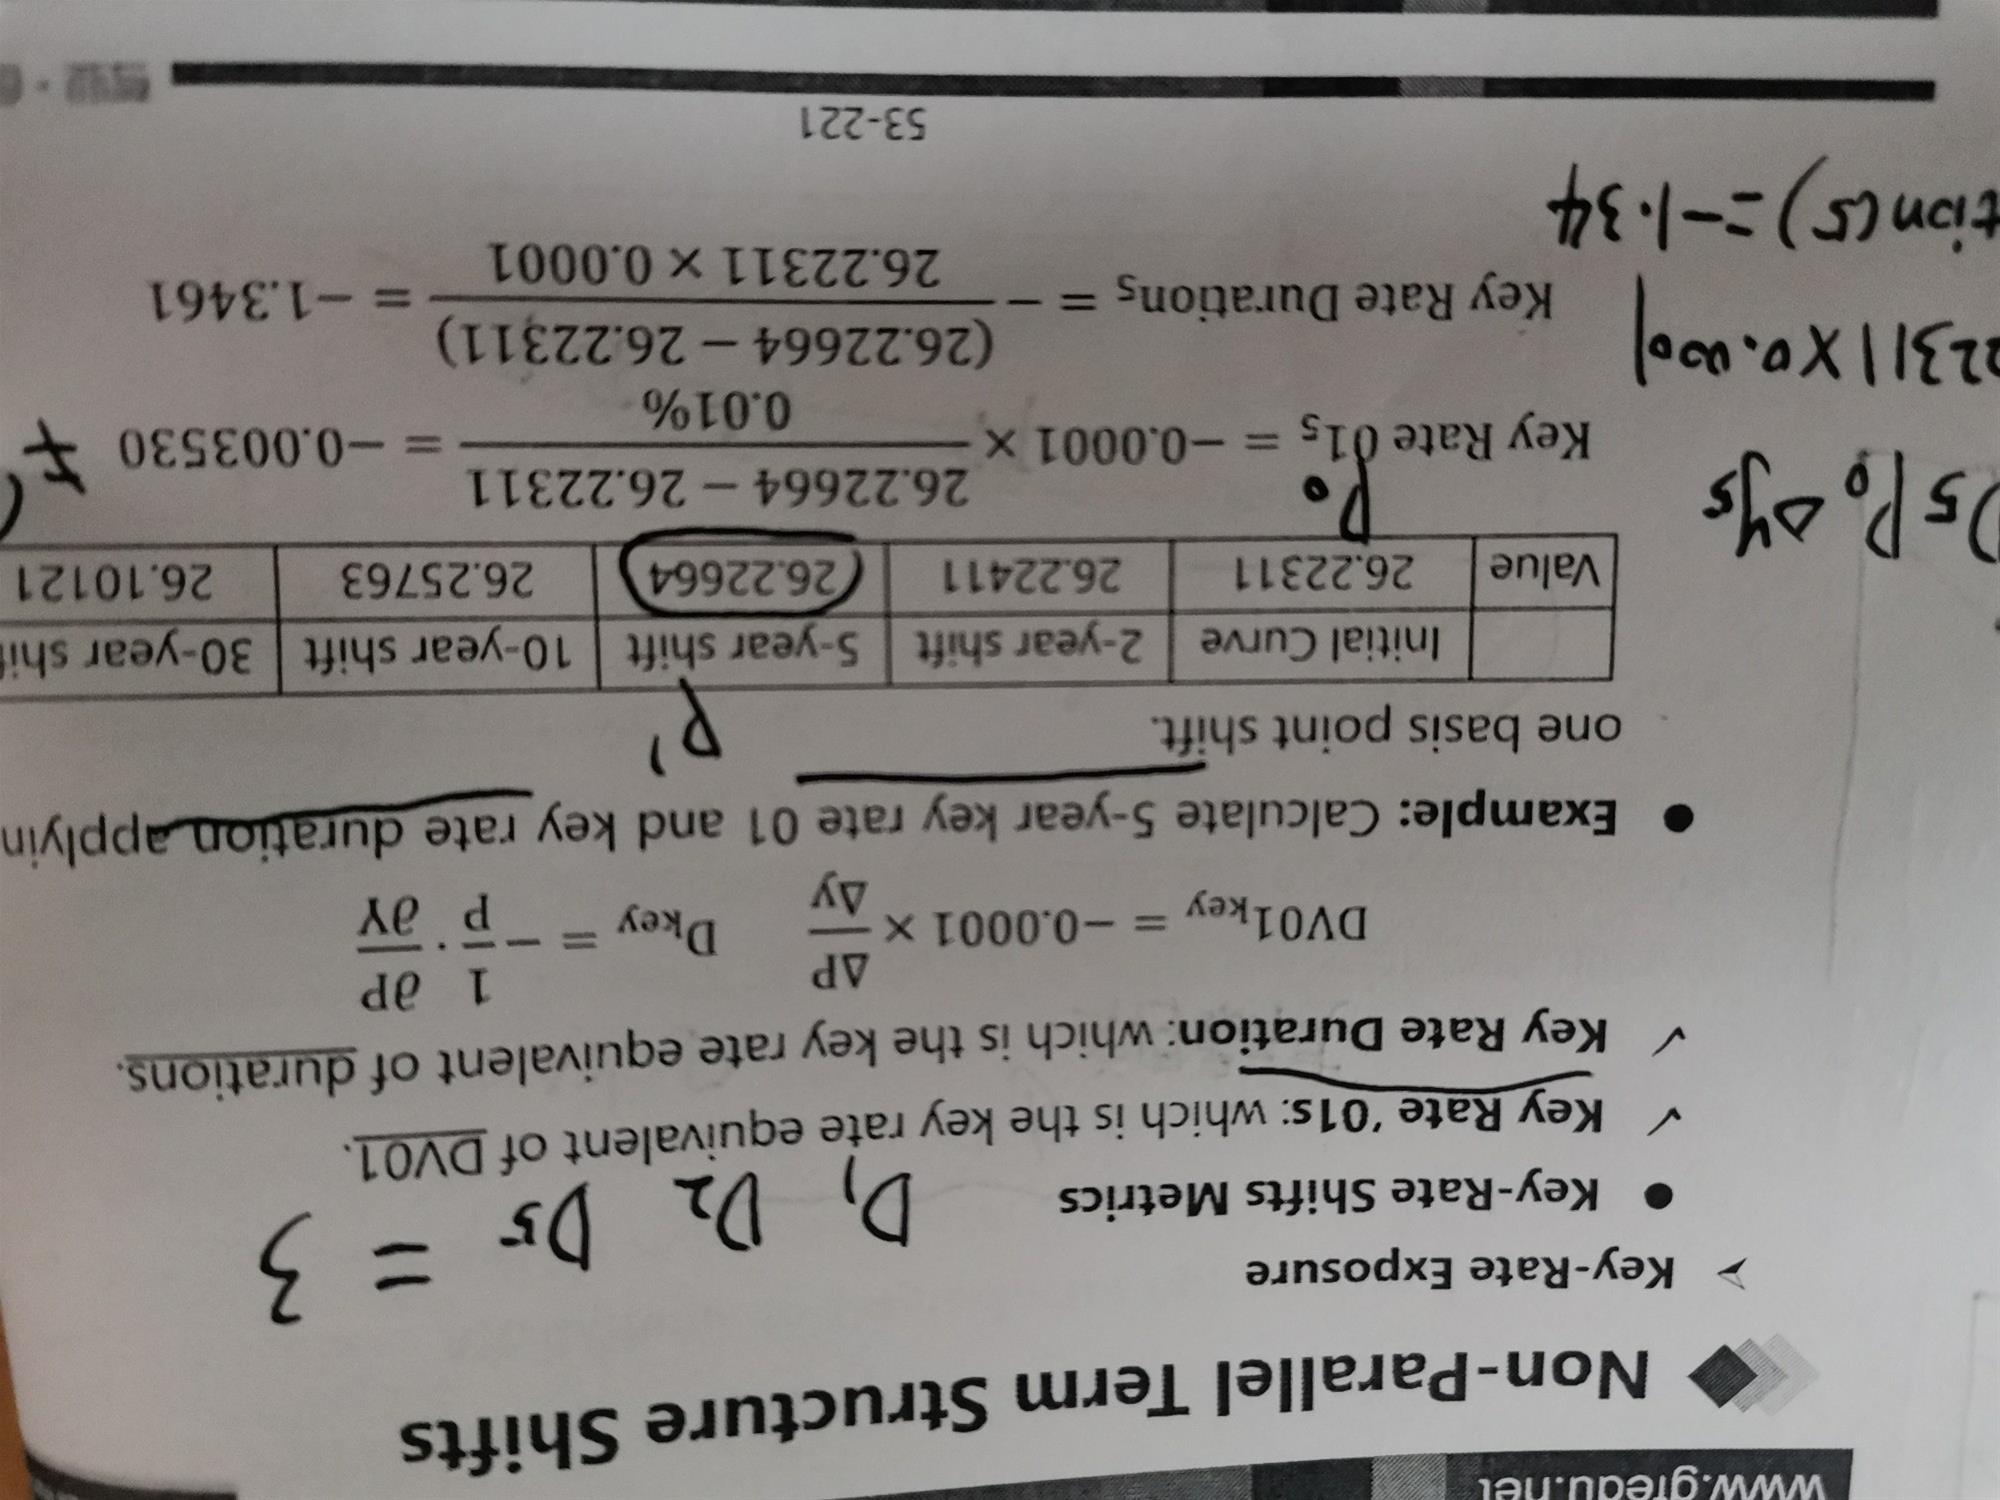 www.gfedu.net
Non-Parallel Term Structure Shifts
➢ Key-Rate Exposure
● Key-Rate Shifts Metrics D₁ D₂ D₅ = 3
✓ Key Rate '01s: which is the key rate equivalent of DV01.
✓ Key Rate Duration: which is the key rate equivalent of durations.
DV01key = −0.0001 × ΔP/Δy Dkey = − 1/P · ∂P/∂Y
● Example: Calculate 5-year key rate 01 and key rate duration applyin
one basis point shift. P'
Initial Curve 2-year shift 5-year shift 10-year shift 30-year shif
Value 26.22311 26.22411 26.22664 26.25763 26.10121
P₀
D5 P₀ Δy5
Key Rate 01₅ = −0.0001 × (26.22664 − 26.22311)/0.01% = −0.003530
22311 × 0.0001
Key Rate Duration₅ = − (26.22664 − 26.22311)/(26.22311 × 0.0001) = −1.3461
tion(5) = −1.34
53-221